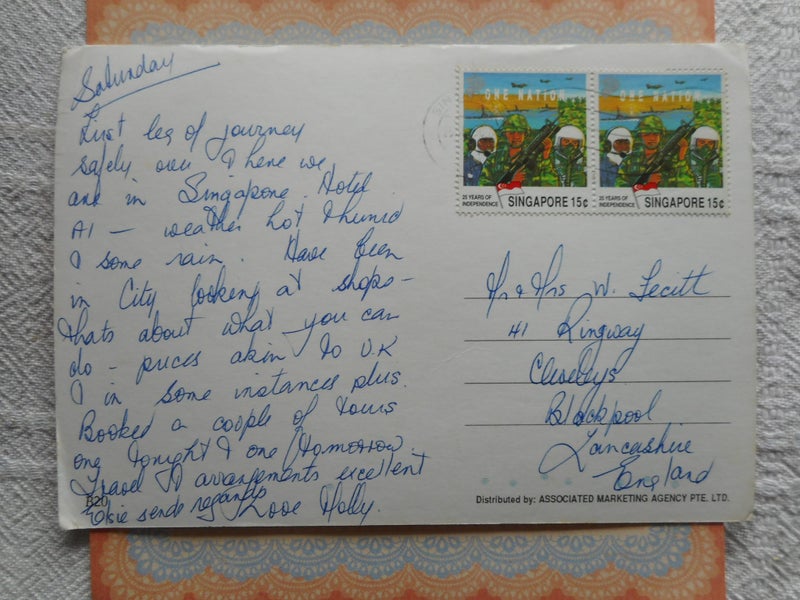 Saturday
Last leg of journey
safely over & here we
are in Singapore. Hotel
A1 — weather hot & humid
& some rain. Have been
in City looking at shops -
thats about what you can
do - prices akin to U.K
& in some instances plus.
Booked a couple of tours
one tonight & one tomorrow.
Travel arrangements excellent
Elsie sends regards Love Molly.
B20
ONE NATION
25 YEARS OF
INDEPENDENCE
SINGAPORE 15¢
ONE NATION
25 YEARS OF
INDEPENDENCE
SINGAPORE 15¢
Mr & Mrs W. Lecitt
41 Ringway
Cleveleys
Blackpool
Lancashire
England
Distributed by: ASSOCIATED MARKETING AGENCY PTE. LTD.